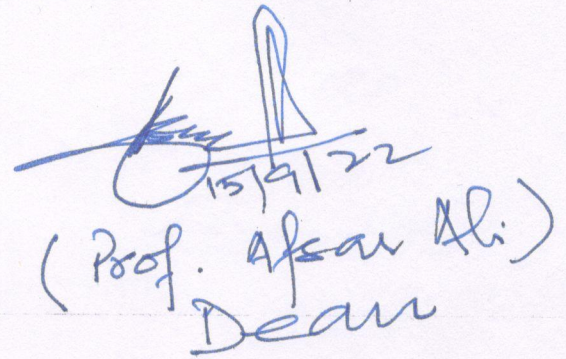 15/9/22
(Prof. Afsar Ali)
Dean